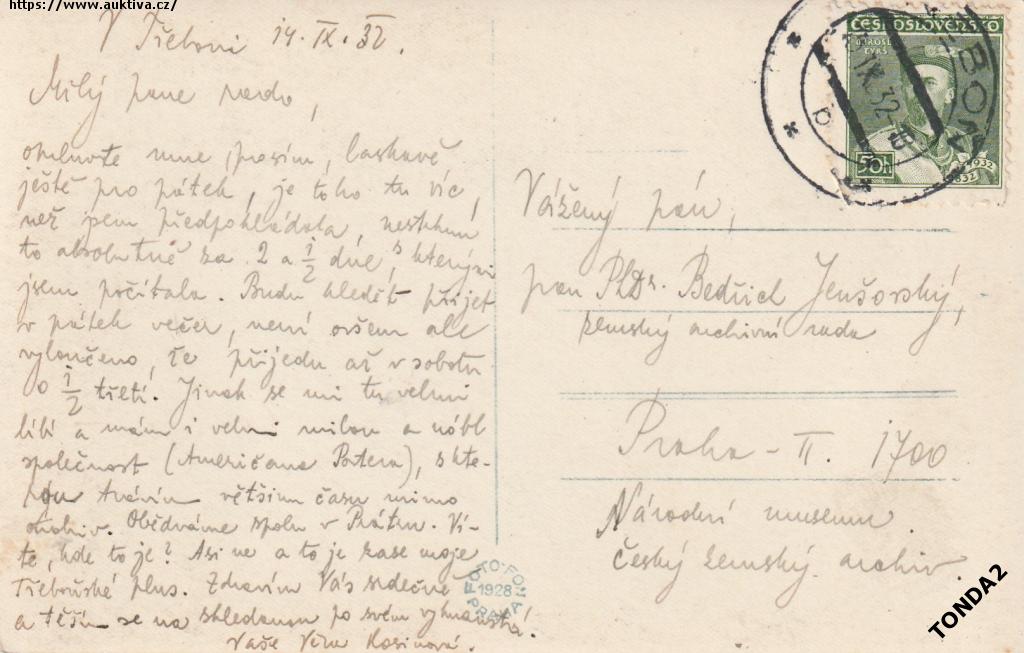 https://www.auktiva.cz/
V Třeboni 14. IX. 32.
Milý pane rado,
omluvte mne, prosím, laskavě
ještě pro pátek, je toho tu víc,
než jsem předpokládala, nestihnu
to absolutně za 2 a 1/2 dne, s kterými
jsem počítala. Budu hledět přijet
v pátek večer, není ovšem ale
vyloučeno, že přijedu až v sobotu
o 1/2 třetí. Jinak se mi tu velmi
líbí a mám i velmi milou a nóbl
společnost (Američana Portera), s kte-
rou trávím většinu času mimo
archiv. Obědváme spolu v Prátru. Ví-
te, kde to je? Asi ne a to je zase moje
Třeboňské plus. Zdravím Vás srdečně
a těším se na shledanou po svém vyhnanství.
Vaše Věra Kosinová.
ČESKOSLOVENSKO
MIROSL.
TYRŠ
50h
1932
1832
IX. 32
b
Vážený pán,
pan PhDr. Bedřich Jenšovský,
zemský archivní rada
Praha - II. 1700
Národní museum.
český zemský archiv.
FOTO-FON
1928
PRAHA
TONDA2